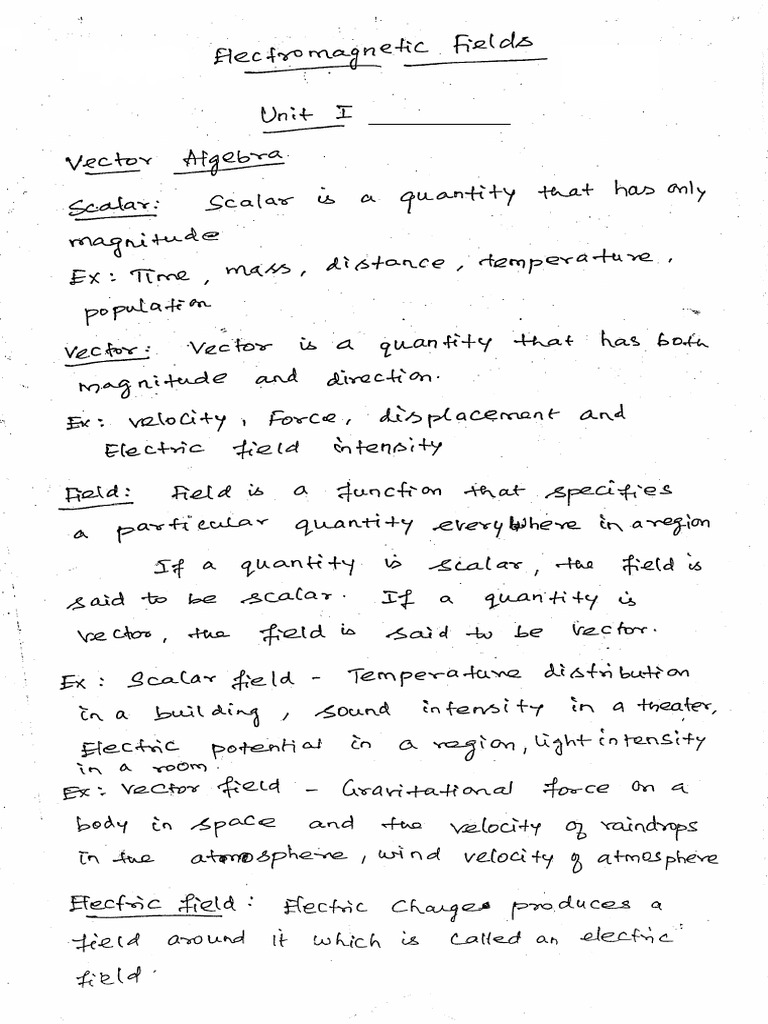 Electromagnetic Fields
Unit I
Vector Algebra.
Scalar: Scalar is a quantity that has only
magnitude
Ex: Time, mass, distance, temperature,
population
Vector: Vector is a quantity that has both
magnitude and direction.
Ex: velocity, Force, displacement and
Electric field intensity
Field: Field is a function that specifies
a particular quantity everywhere in a region
If a quantity is scalar, the field is
said to be scalar. If a quantity is
vector, the field is said to be vector.
Ex: Scalar field - Temperature distribution
in a building, sound intensity in a theater,
Electric potential in a region, light intensity
in a room.
Ex: Vector field - Gravitational force on a
body in space and the velocity of raindrops
in the atmosphere, wind velocity of atmosphere
Electric field: Electric Charges produces a
field around it which is called an electric
field.